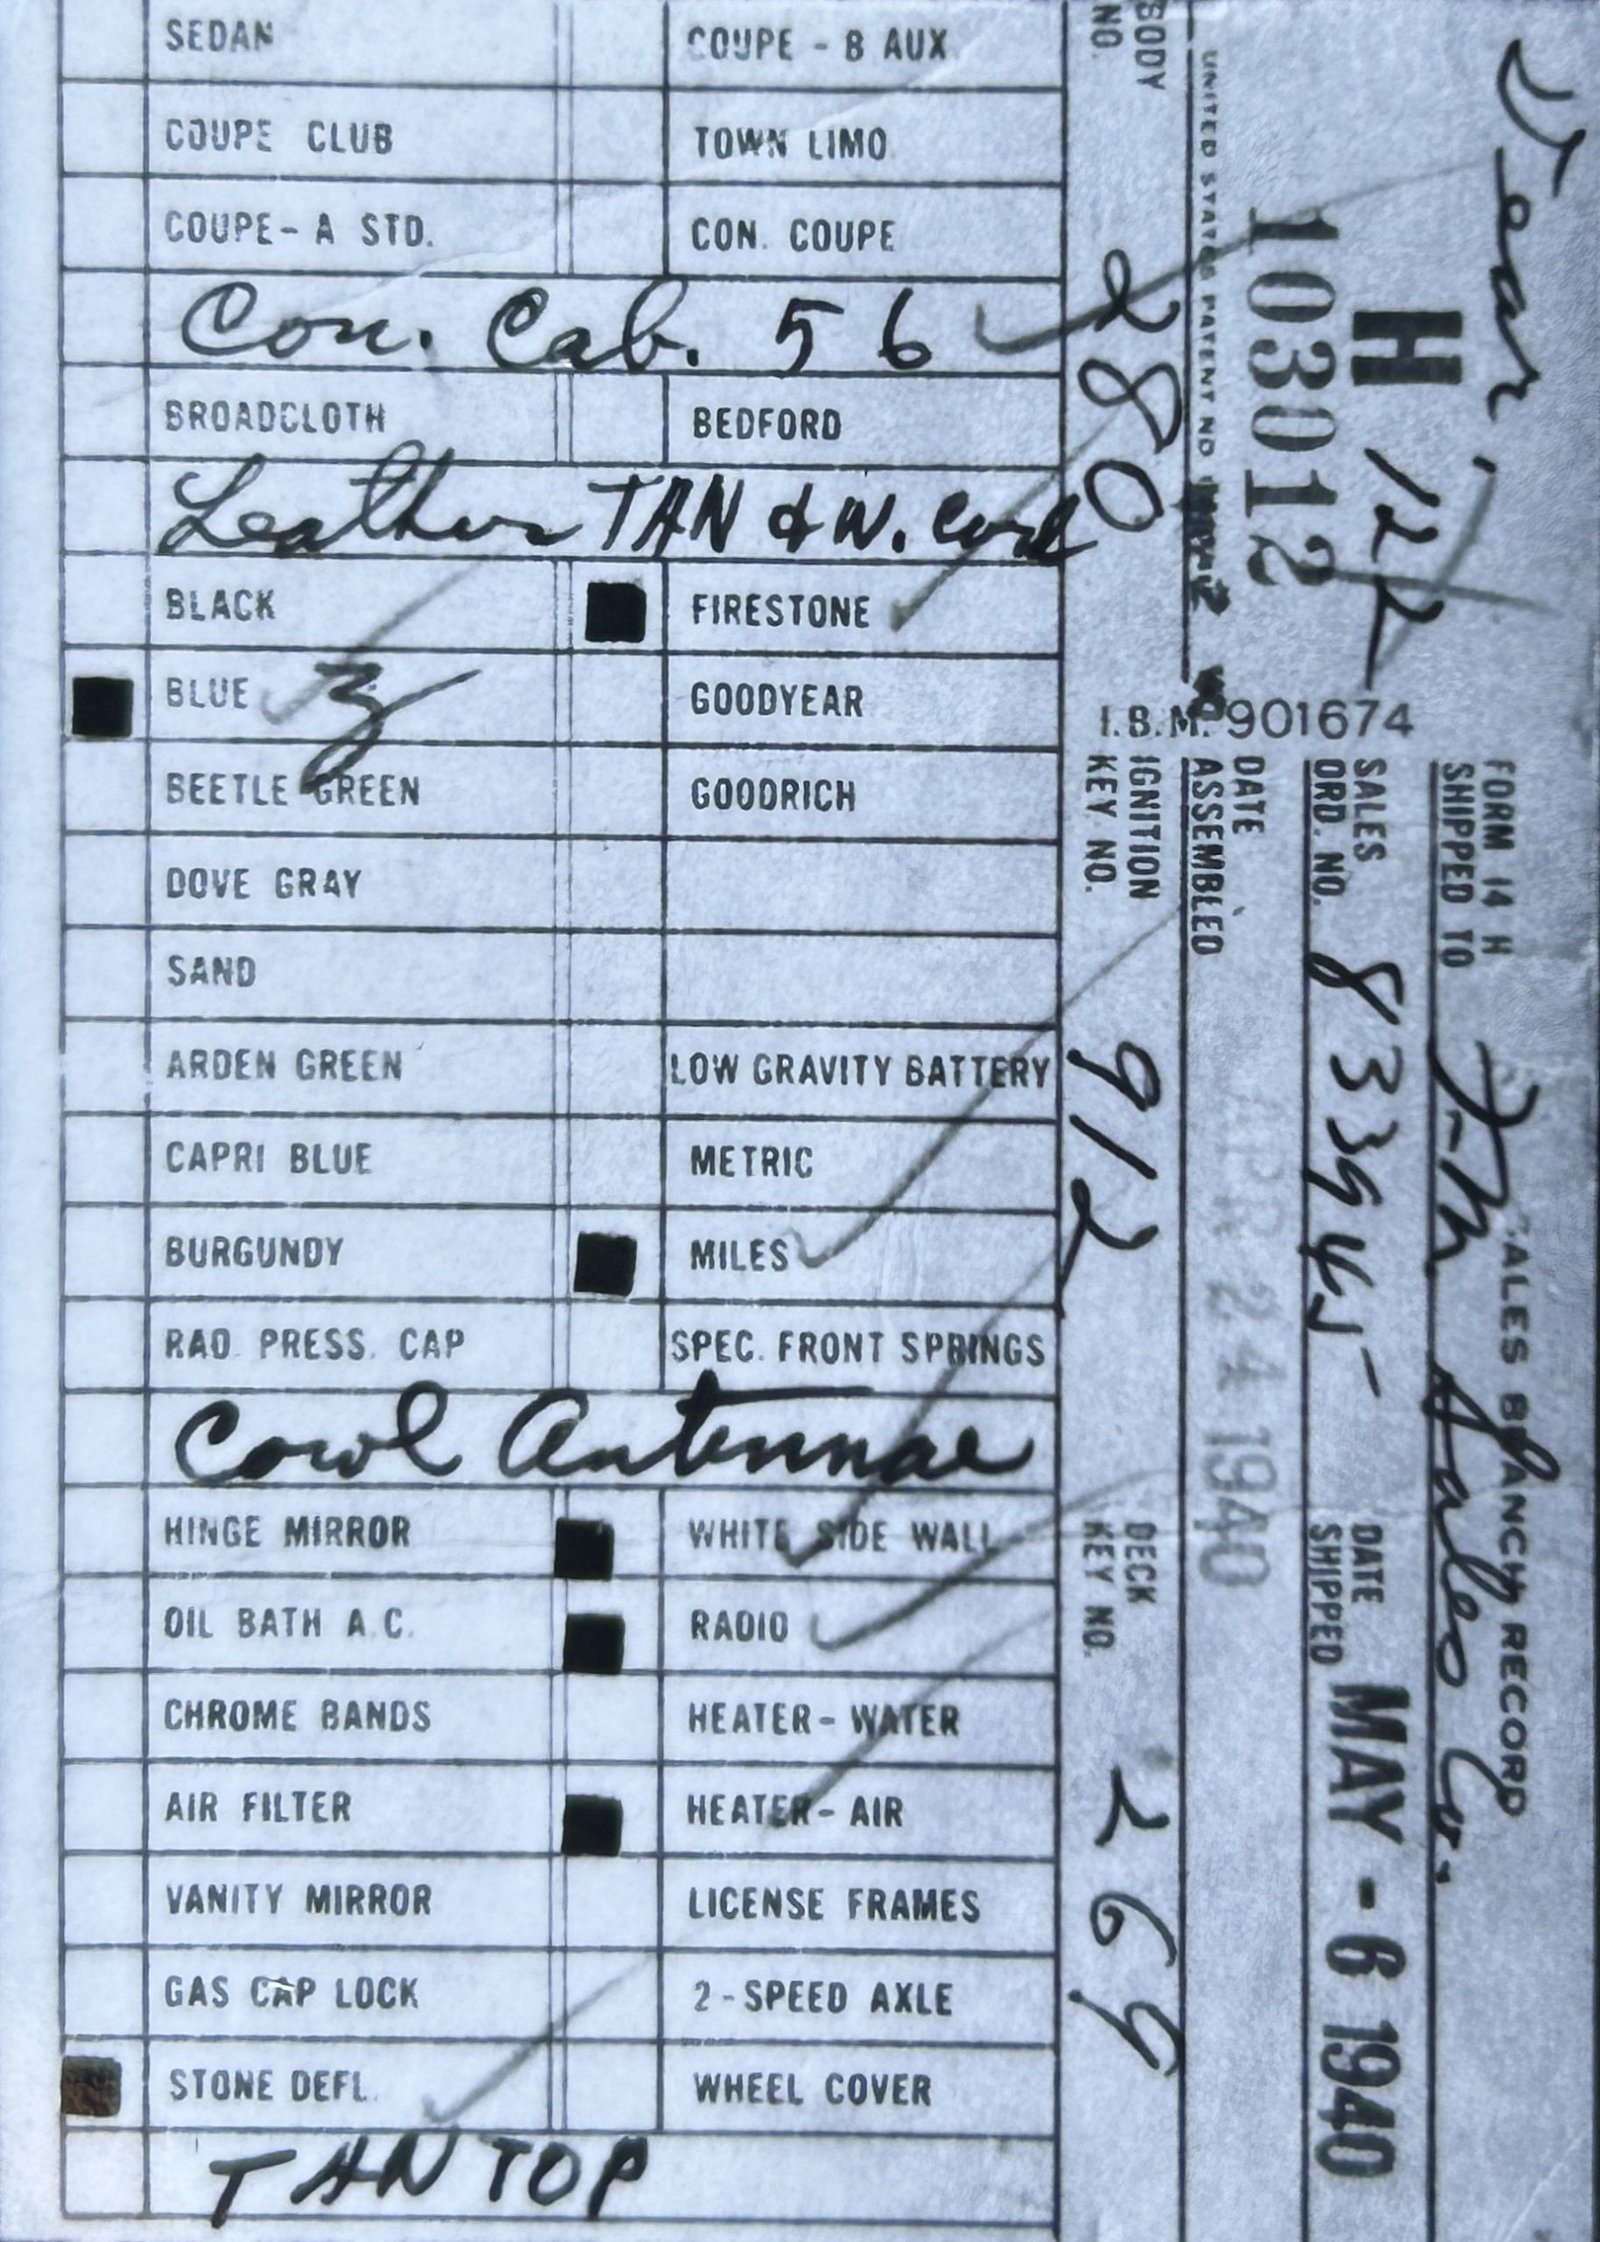 SEDAN
COUPE - B AUX
COUPE CLUB
TOWN LIMO
COUPE- A STD.
CON. COUPE
Con. Cab. 56
BROADCLOTH
BEDFORD
Leather TAN & W. Cord
BLACK
FIRESTONE
BLUE
GOODYEAR
BEETLE GREEN
GOODRICH
DOVE GRAY
SAND
ARDEN GREEN
LOW GRAVITY BATTERY
CAPRI BLUE
METRIC
BURGUNDY
MILES
RAD. PRESS. CAP
SPEC. FRONT SPRINGS
Cowl Antennae
HINGE MIRROR
WHITE SIDE WALL
OIL BATH A.C.
RADIO
CHROME BANDS
HEATER - WATER
AIR FILTER
HEATER - AIR
VANITY MIRROR
LICENSE FRAMES
GAS CAP LOCK
2 - SPEED AXLE
STONE DEFL.
WHEEL COVER
TAN TOP
H 122
103012
UNITED STATES PATENT NO
BODY NO. 280
I.B.M. 901674
FORM 14 H
SALES BRANCH RECORD
SHIPPED TO Sales Co.
SALES ORD. NO.
DATE SHIPPED MAY - 6 1940
DATE ASSEMBLED APR 24 1940
IGNITION KEY NO. 912
DECK KEY NO. 269